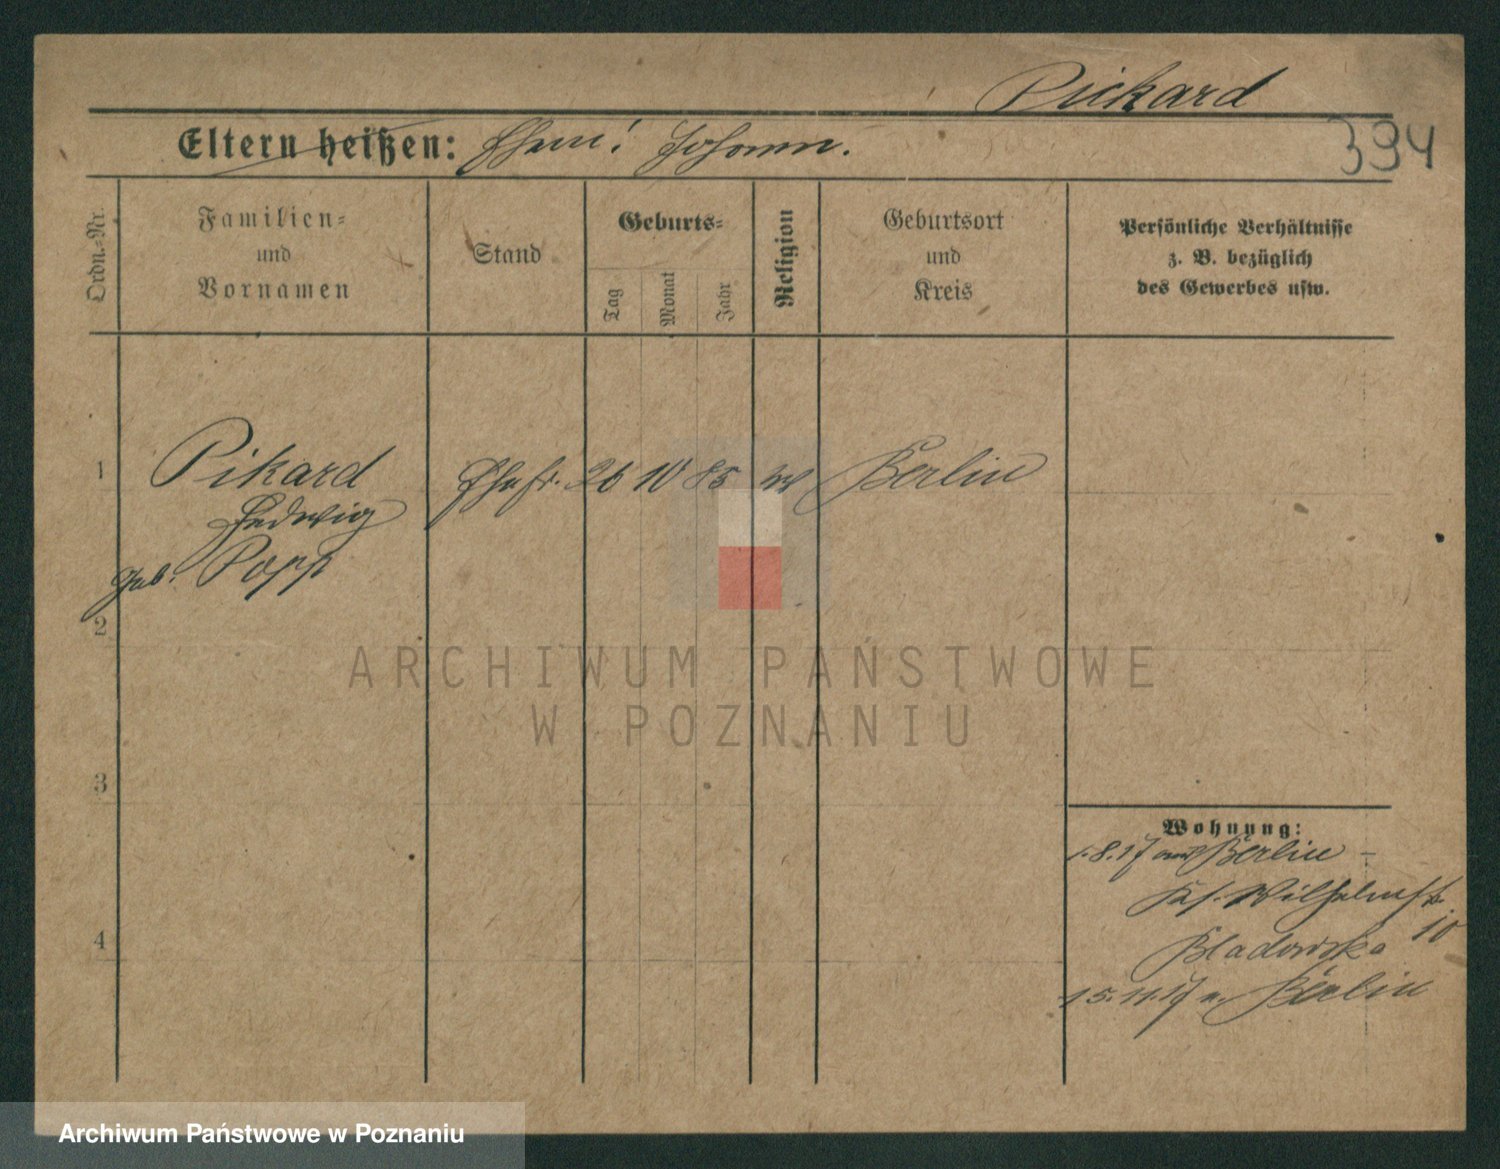 Pickard
394
Eltern heißen: Ehem: Johann.
Ordn.-Nr.
Familien- und Vornamen
Stand
Geburts-
Tag
Monat
Jahr
Religion
Geburtsort und Kreis
Persönliche Verhältnisse
z. B. bezüglich
des Gewerbes usw.
1 Pikard Ehefr. 26 10 85 Berlin
Hedwig
geb. Popp
2
3
4
Wohnung:
1.8.17 aus Berlin -
Ks. Wilhelmstr.
10
Bladowska
15.11.17 n. Berlin
ARCHIWUM PAŃSTWOWE
W POZNANIU
Archiwum Państwowe w Poznaniu